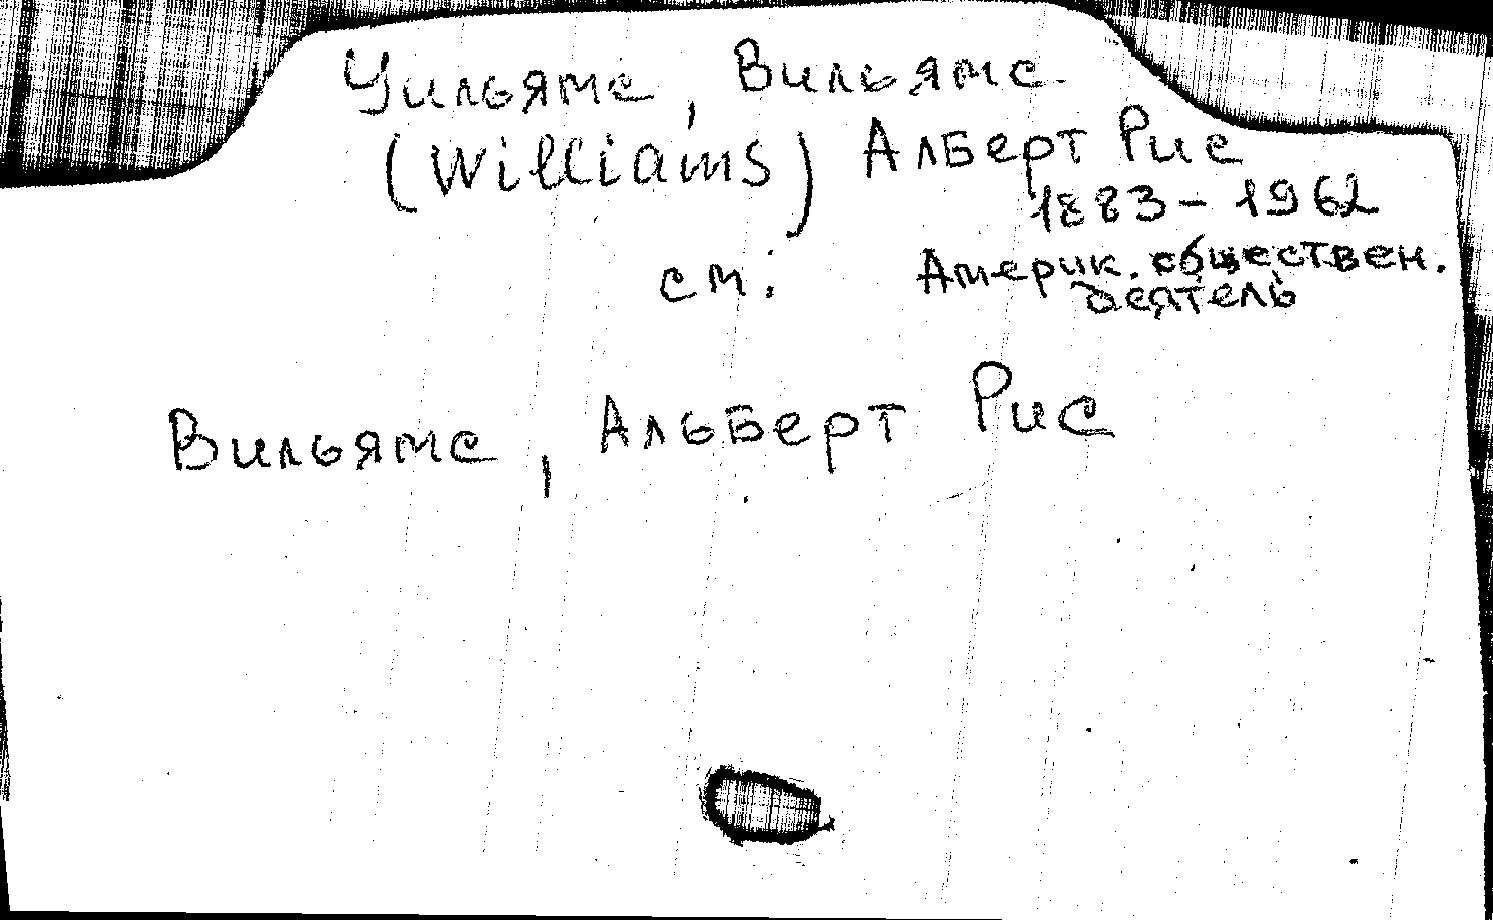 Уильямс, Вильямс
(Williams) Алберт Рис
1883-1962
см: Америк. обществен.
деятель
Вильямс, Альберт Рис